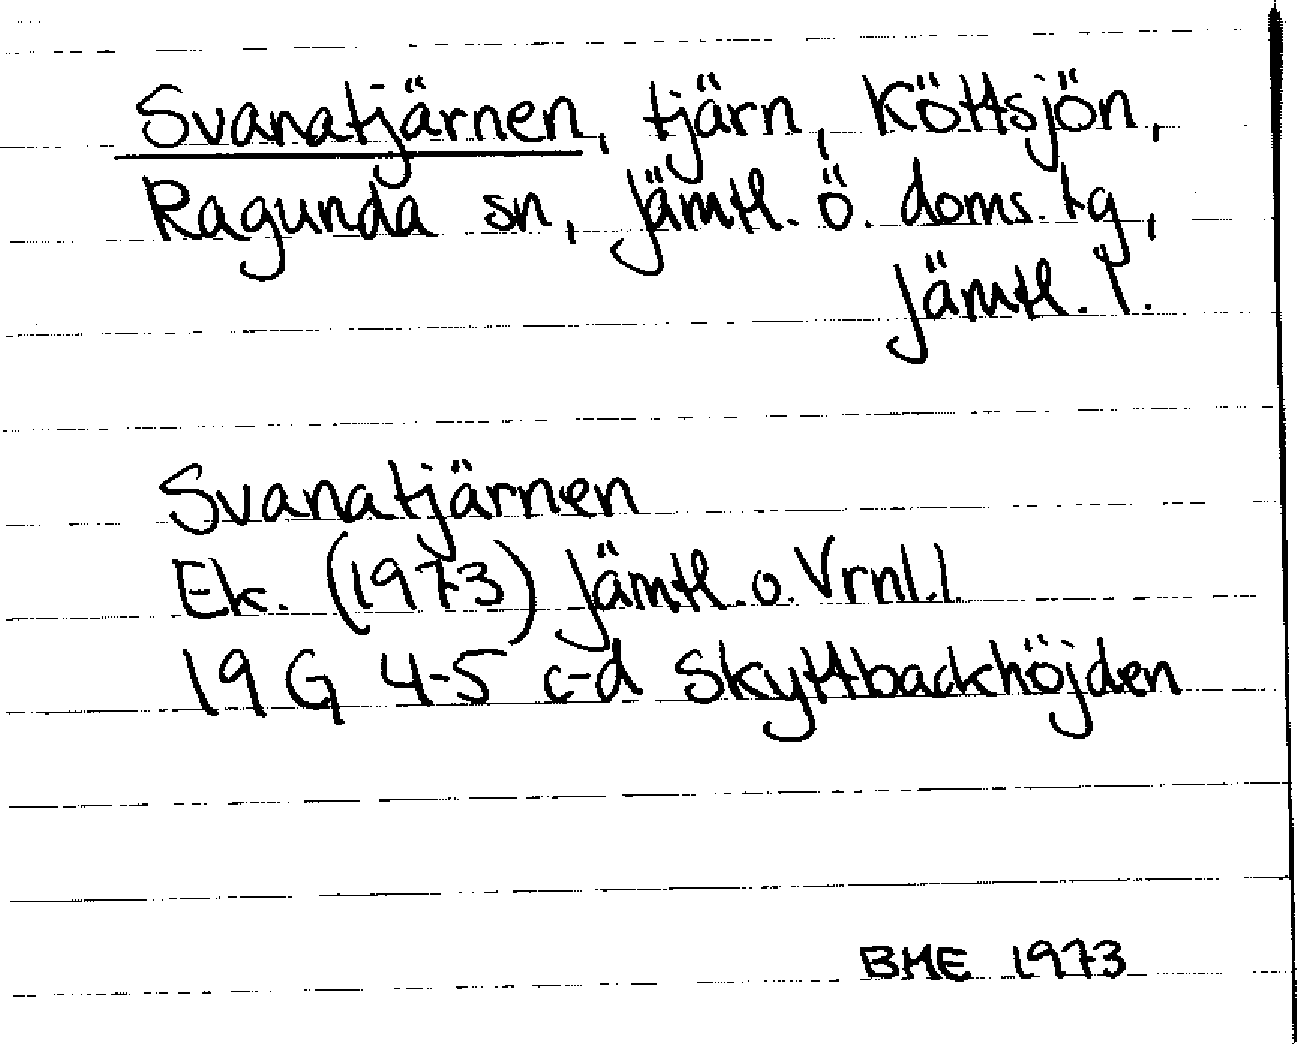 Svanatjärnen, tjärn, Köttsjön,
Ragunda sn, Jämtl. ö. doms. tg,
Jämtl. l.
Svanatjärnen
Ek. (1973) Jämtl. o. Vrnl. l.
19 G 4-5 c-d Skyttbackhöjden
BME 1973